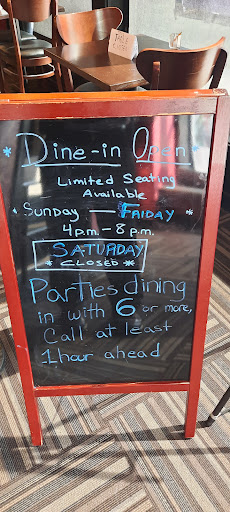 * Dine-in Open *
Limited Seating
Available
* Sunday — Friday *
4p.m. – 8 p.m.
SATURDAY
* CLOSED *
Parties dining
in with 6 or more,
Call at least
1hour ahead